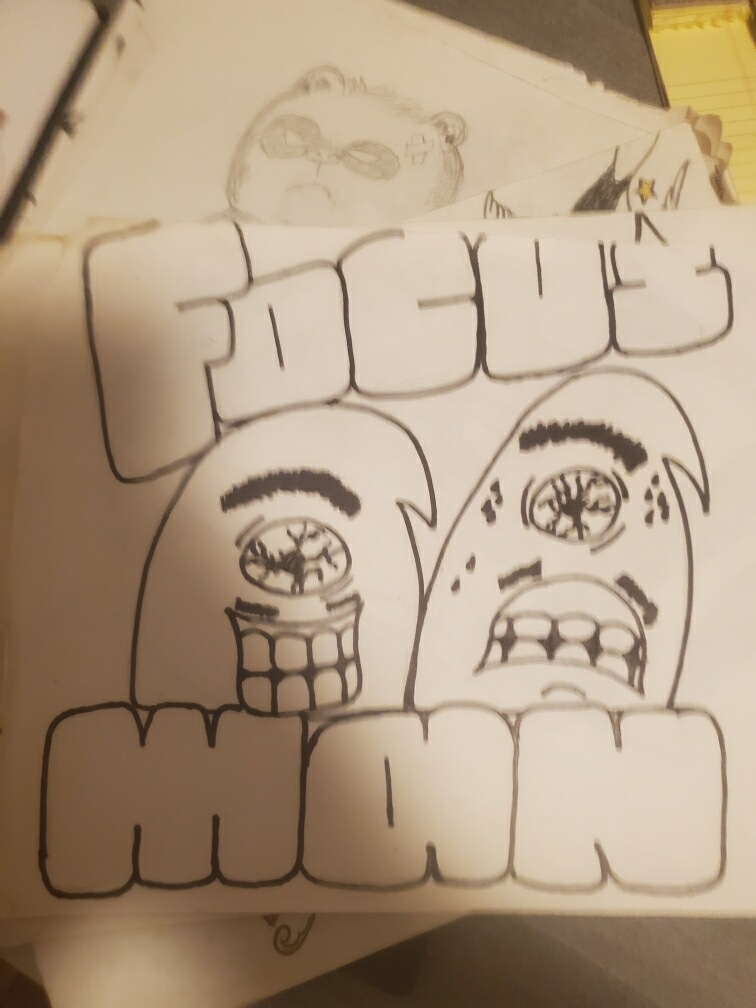 FOCUS
MaN